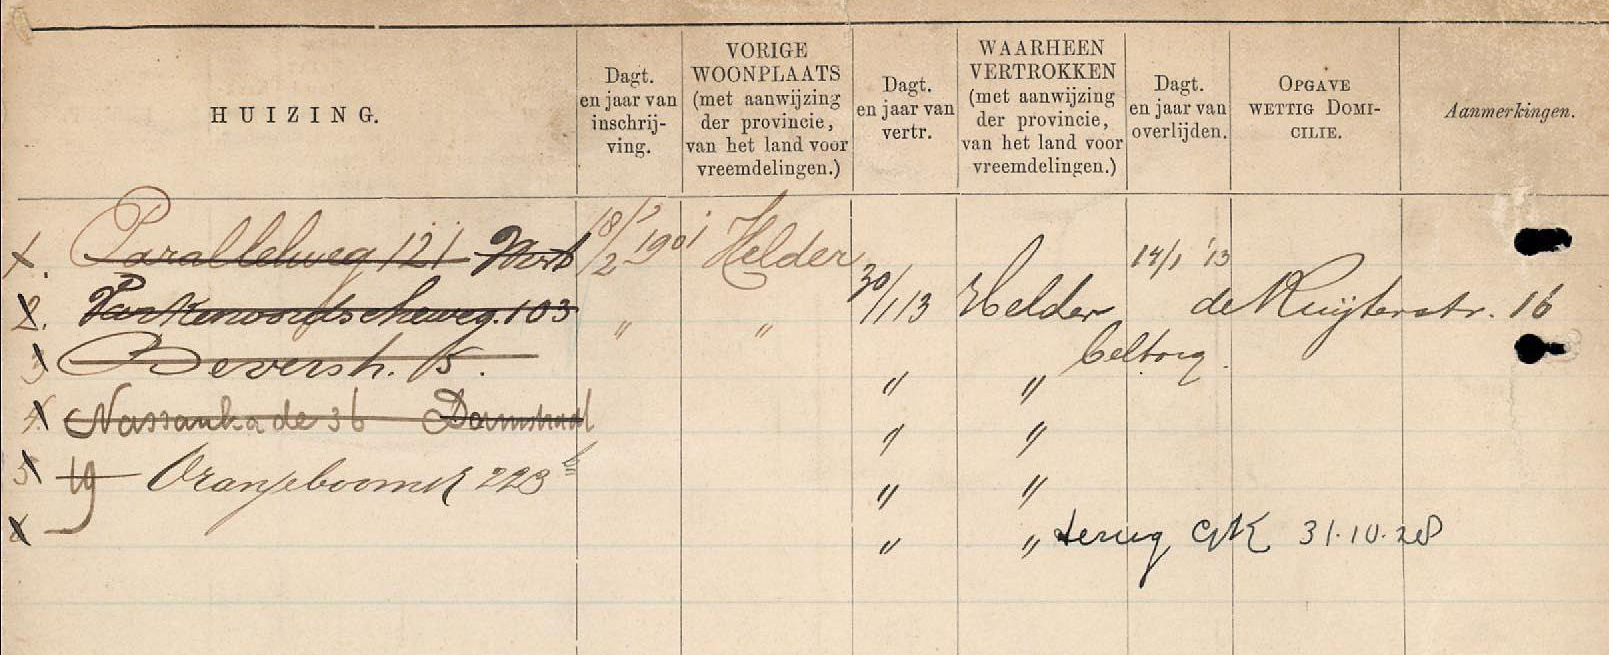 HUIZING.
Dagt. en jaar van inschrij-ving.
VORIGE WOONPLAATS (met aanwijzing der provincie, van het land voor vreemdelingen.)
Dagt. en jaar van vertr.
WAARHEEN VERTROKKEN (met aanwijzing der provincie, van het land voor vreemdelingen.)
Dagt. en jaar van overlijden.
OPGAVE WETTIG DOMI-CILIE.
Aanmerkingen.
1. Parallelweg 121 18/2 1901 Helder 14/1 '13
2. Varkenoordscheweg. 103 " " 30/1 13 Helder de Ruijterstr. 16
3 Beverstr. 15. " "
4 Nassaukade 36 Damstraat " "
5 19 Oranjeboomstr 223 b " "
6 " " terug GK 31.10.28